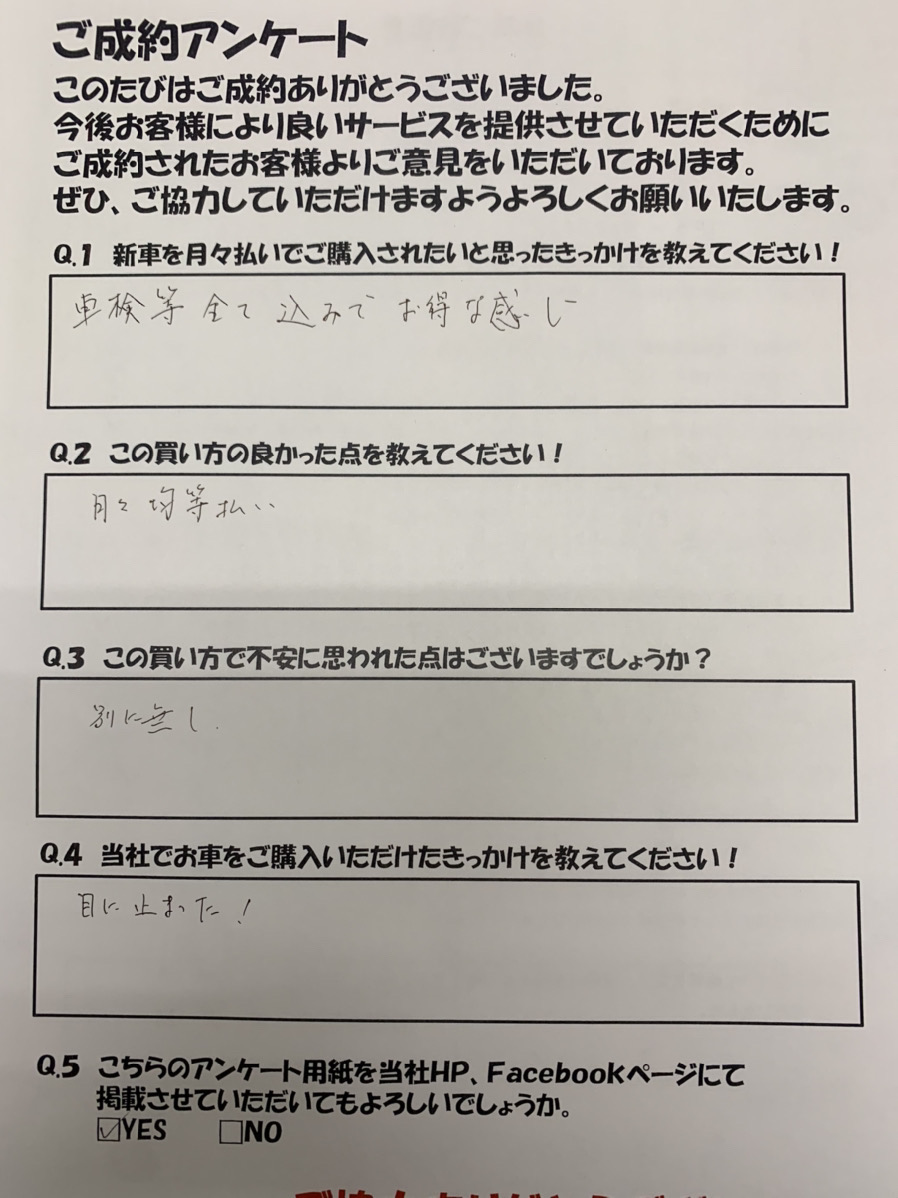 ご成約アンケート
このたびはご成約ありがとうございました。
今後お客様により良いサービスを提供させていただくために
ご成約されたお客様よりご意見をいただいております。
ぜひ、ご協力していただけますようよろしくお願いいたします。
Q.1 新車を月々払いでご購入されたいと思ったきっかけを教えてください！
車検等 全て 込みで お得な感じ
Q.2 この買い方の良かった点を教えてください！
月々均等払い
Q.3 この買い方で不安に思われた点はございますでしょうか？
別に無し.
Q.4 当社でお車をご購入いただけたきっかけを教えてください！
目に止まった！
Q.5 こちらのアンケート用紙を当社HP、Facebookページにて
掲載させていただいてもよろしいでしょうか。
☑YES □NO